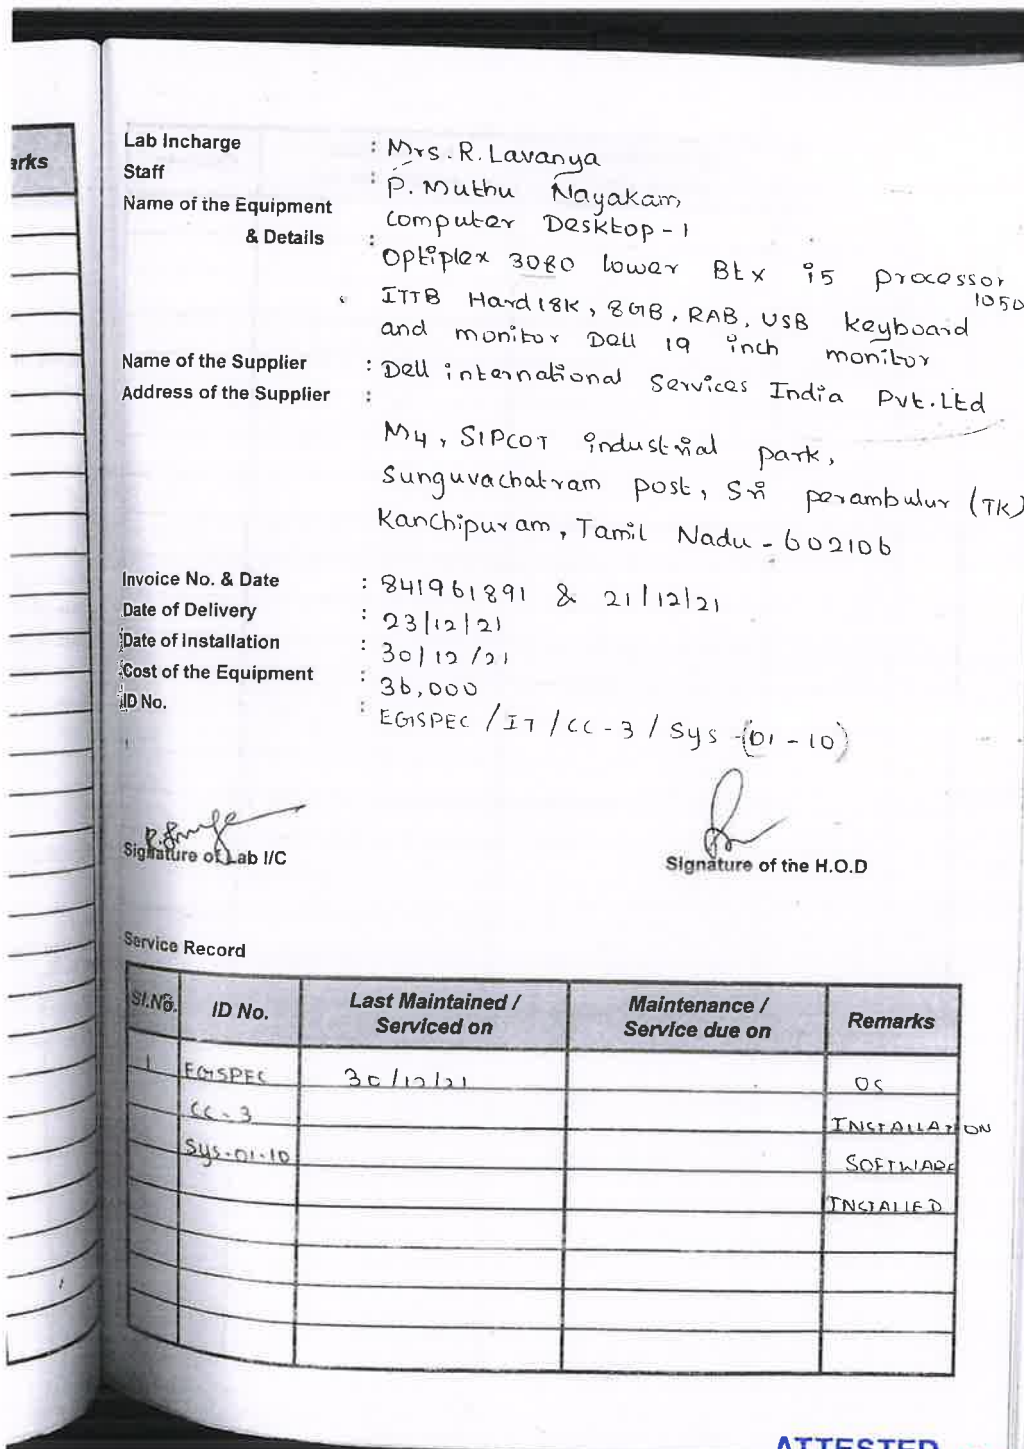 arks
Lab Incharge : Mrs. R. Lavanya
Staff : P. Muthu Nayakam
Name of the Equipment Computer Desktop - 1
& Details :
Optiplex 3080 lower Btx i5 processor
1050
ITTB Hard 18K, 8GB, RAB, USB keyboard
and monitor Dell 19 inch monitor
Name of the Supplier : Dell international Services India Pvt. Ltd
Address of the Supplier :
M4, SIPCOT industrial park,
Sunguvachatram post, Sri perambulur (TK)
Kanchipuram, Tamil Nadu - 602106
Invoice No. & Date : 841961891 & 21/12/21
Date of Delivery : 23/12/21
Date of Installation : 30/12/21
Cost of the Equipment : 36,000
ID No. : EGSPEC / IT / CC - 3 / Sys - (01 - 10)
Signature of Lab I/C
Signature of the H.O.D
Service Record
Sl.No. ID No. Last Maintained / Serviced on Maintenance / Service due on Remarks
1 EGSPEC 30/12/21 OS
CC - 3 INSTALLATION
Sys - 01 - 10 SOFTWARE
INSTALLED
ATTESTED